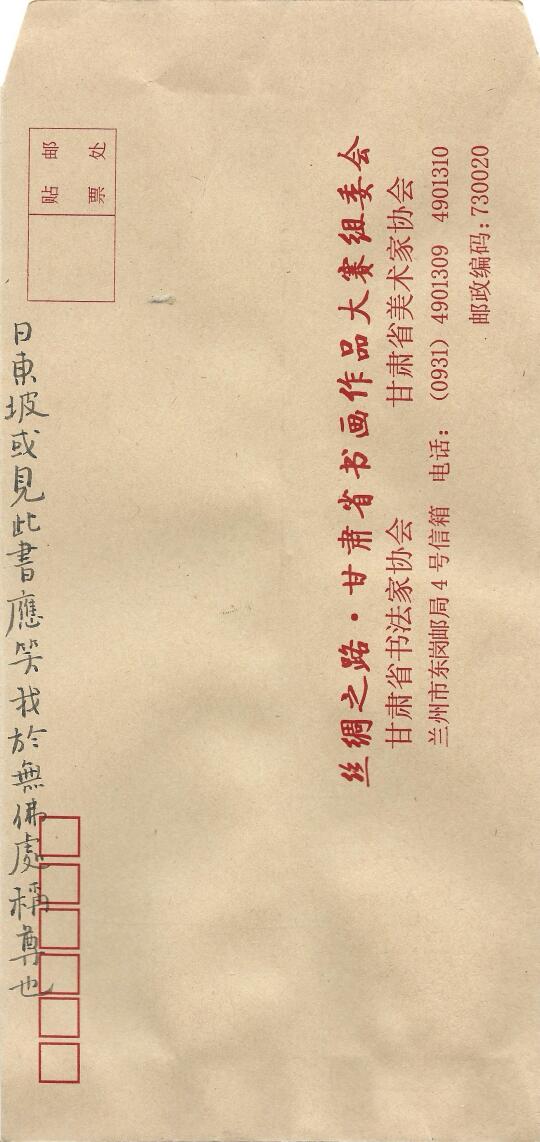 贴邮
票处
日東坡或見此書應笑我於無佛處稱尊也
丝绸之路·甘肃省书画作品大赛组委会
甘肃省书法家协会 甘肃省美术家协会
兰州市东岗邮局4号信箱 电话:(0931)4901309 4901310
邮政编码:730020